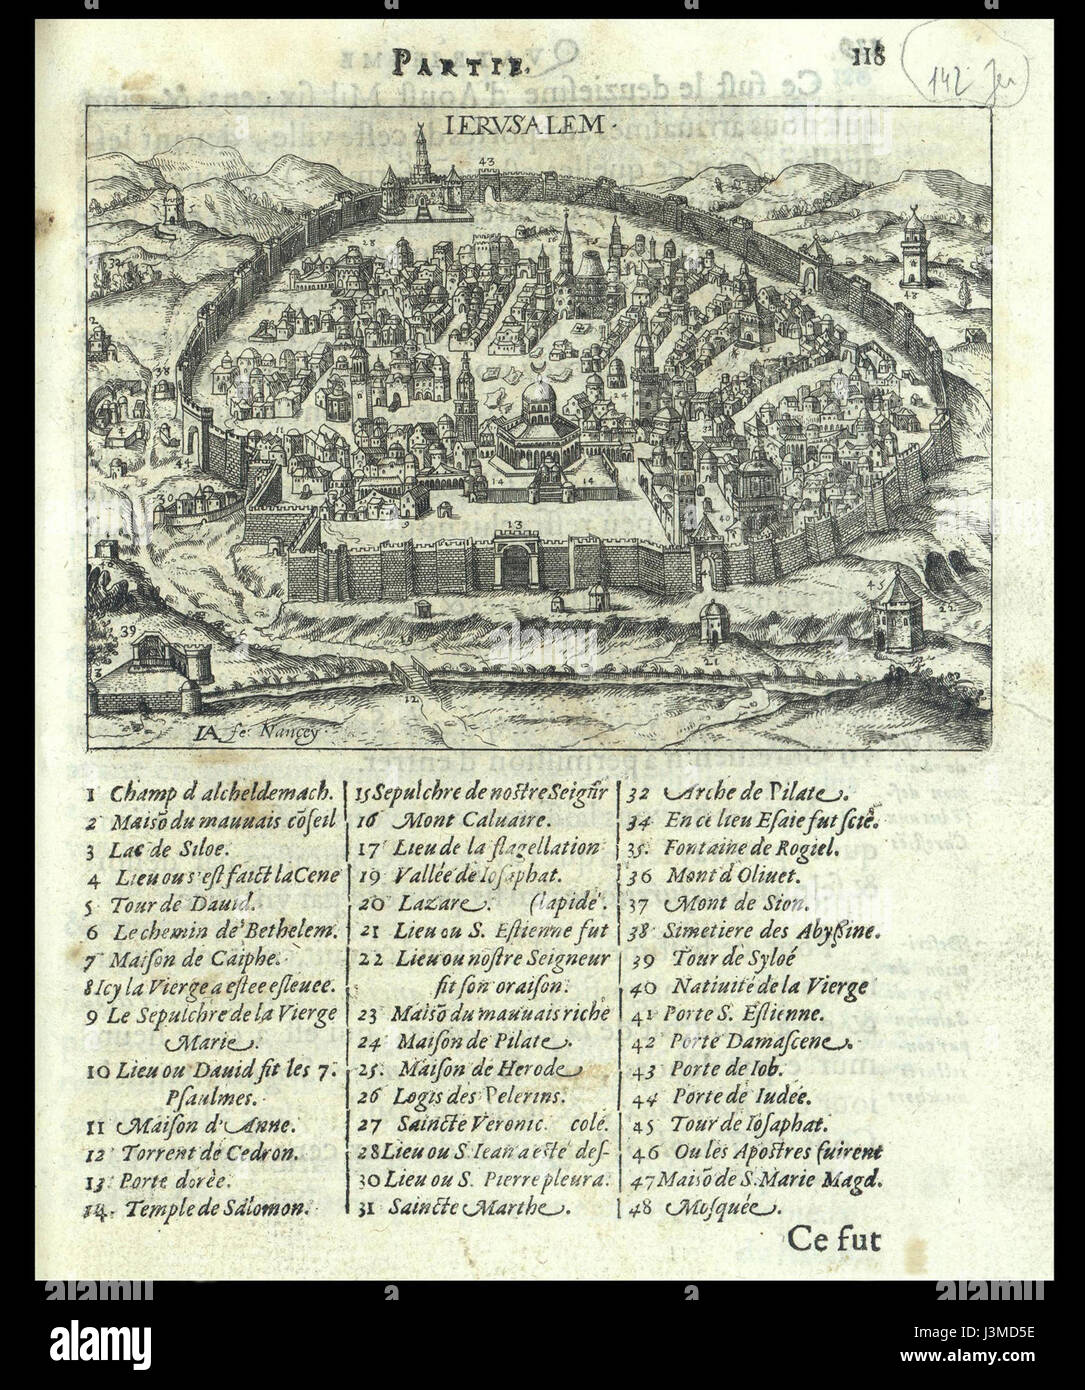 PARTIE.
118
142 Jer
IERVSALEM.
IA fe: Nançey.
1 Champ d alcheldemach.
2 Maisõ du mauuais cõseil
3 Lac de Siloe.
4 Lieu ou s'est faict la Cene
5 Tour de Dauid.
6 Le chemin de Bethelem.
7 Maison de Caiphe.
8 Icy la Vierge a estee esleuee.
9 Le Sepulchre de la Vierge
Marie.
10 Lieu ou Dauid fit les 7.
Psaulmes.
11 Maison d'Anne.
12 Torrent de Cedron.
13 Porte dorèe.
14. Temple de Salomon.
15 Sepulchre de nostre Seignr̃
16 Mont Caluaire.
17 Lieu de la flagellation
19 Vallée de Iosaphat.
20 Lazare. (lapidé.
21 Lieu ou S. Estienne fut
22 Lieu ou nostre Seigneur
fit son oraison.
23 Maisõ du mauuais riche
24 Maison de Pilate.
25. Maison de Herode
26 Logis des Pelerins.
27 Saincte Veronic. colé.
28 Lieu ou S. Iean a esté des-
30 Lieu ou S. Pierre pleura.
31 Saincte Marthe.
32 Arche de Pilate.
34 En ce lieu Esaie fut scié.
35. Fontaine de Rogiel.
36 Mont d Oliuet.
37 Mont de Sion.
38 Simetiere des Abyßine.
39 Tour de Syloé
40 Natiuité de la Vierge
41 Porte S. Estienne.
42 Porte Damascene.
43 Porte de Iob.
44 Porte de Iudée.
45 Tour de Iosaphat.
46 Ou les Apostres fuirent
47 Maisõ de S. Marie Magd.
48 Mosquée.
Ce fut
alamy
Image ID: J3MD5E
www.alamy.com